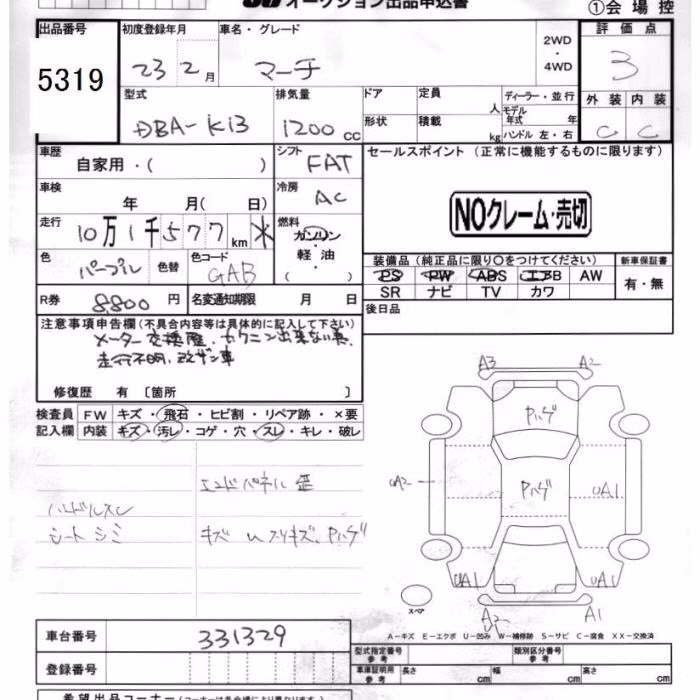 オークション出品申込書
①会場控
出品番号 初度登録年月 車名・グレード 2WD・4WD 評価点
5319 23 2月 マーチ 3
型式 排気量 ドア 定員 人 ディーラー・並行 外装 内装
DBA-K13 1200cc 形状 積載 kg モデル年式 年 ハンドル 左・右 C C
車歴 自家用・( ) シフト FAT セールスポイント (正常に機能するものに限ります)
車検 年 月( 日) 冷房 AC
NOクレーム・売切
走行 10万1千577km ※ 燃料 ガソリン・軽油・( )
色 パープル 色替 色コード GAB
装備品 (純正品に限り○をつけてください) 新車保証書
PS PW ABS エアB AW 有・無
SR ナビ TV カワ
R券 8,800円 名変通知期限 月 日 後日品
注意事項申告欄 (不具合内容等は具体的に記入して下さい)
メーター交換歴、カクニン出来ない為、
走行不明、改ザン車
修復歴 有 〔箇所 〕
検査員 FW キズ・飛石・ヒビ割・リペア跡・×要
記入欄 内装 キズ・汚レ・コゲ・穴・スレ・キレ・破レ
A3 A2
Pハゲ
エンドパネル 歪
UA2 Pハゲ UA1
ハンドルスレ
シート シミ キズ
Pハゲ
UA1 UA1
スペア A2 A1
A-キズ E-エクボ U-凹み W-補修跡 S-サビ C-腐食 XX-交換済
車台番号 331329
型式指定番号 参考 類別区分番号 参考
登録番号 車庫証明用 参考 長さ cm 幅 cm 高さ cm
希望出品コーナー